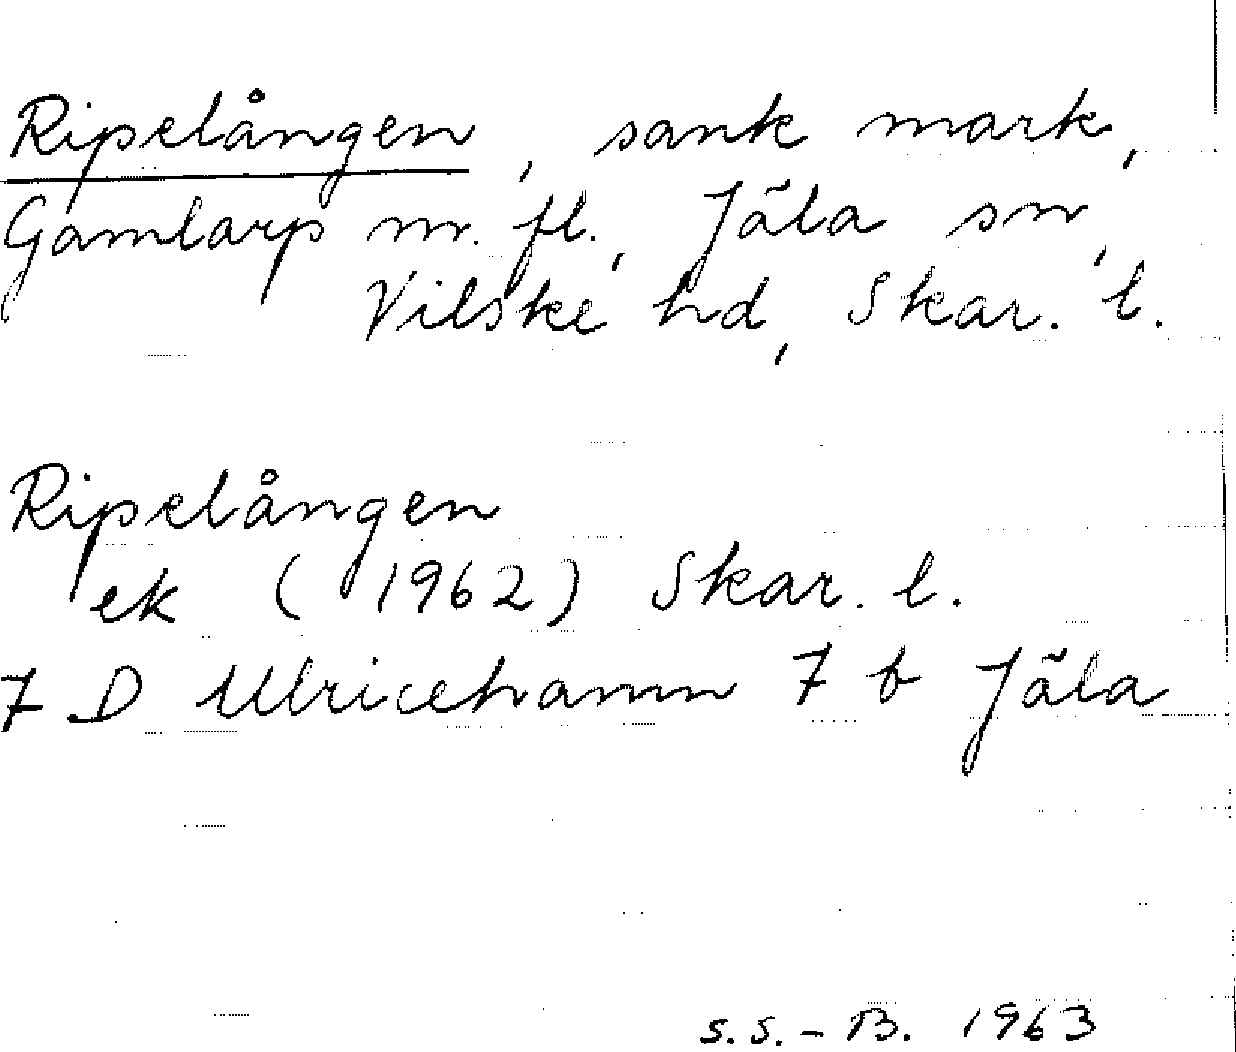 Ripelången, sank mark,
Gamlarp m. fl., Jäla sn,
Vilske hd, Skar. l.
Ripelången
ek (1962) Skar. l.
7 D Ulricehamn 7 b Jäla
S. S. - B. 1963